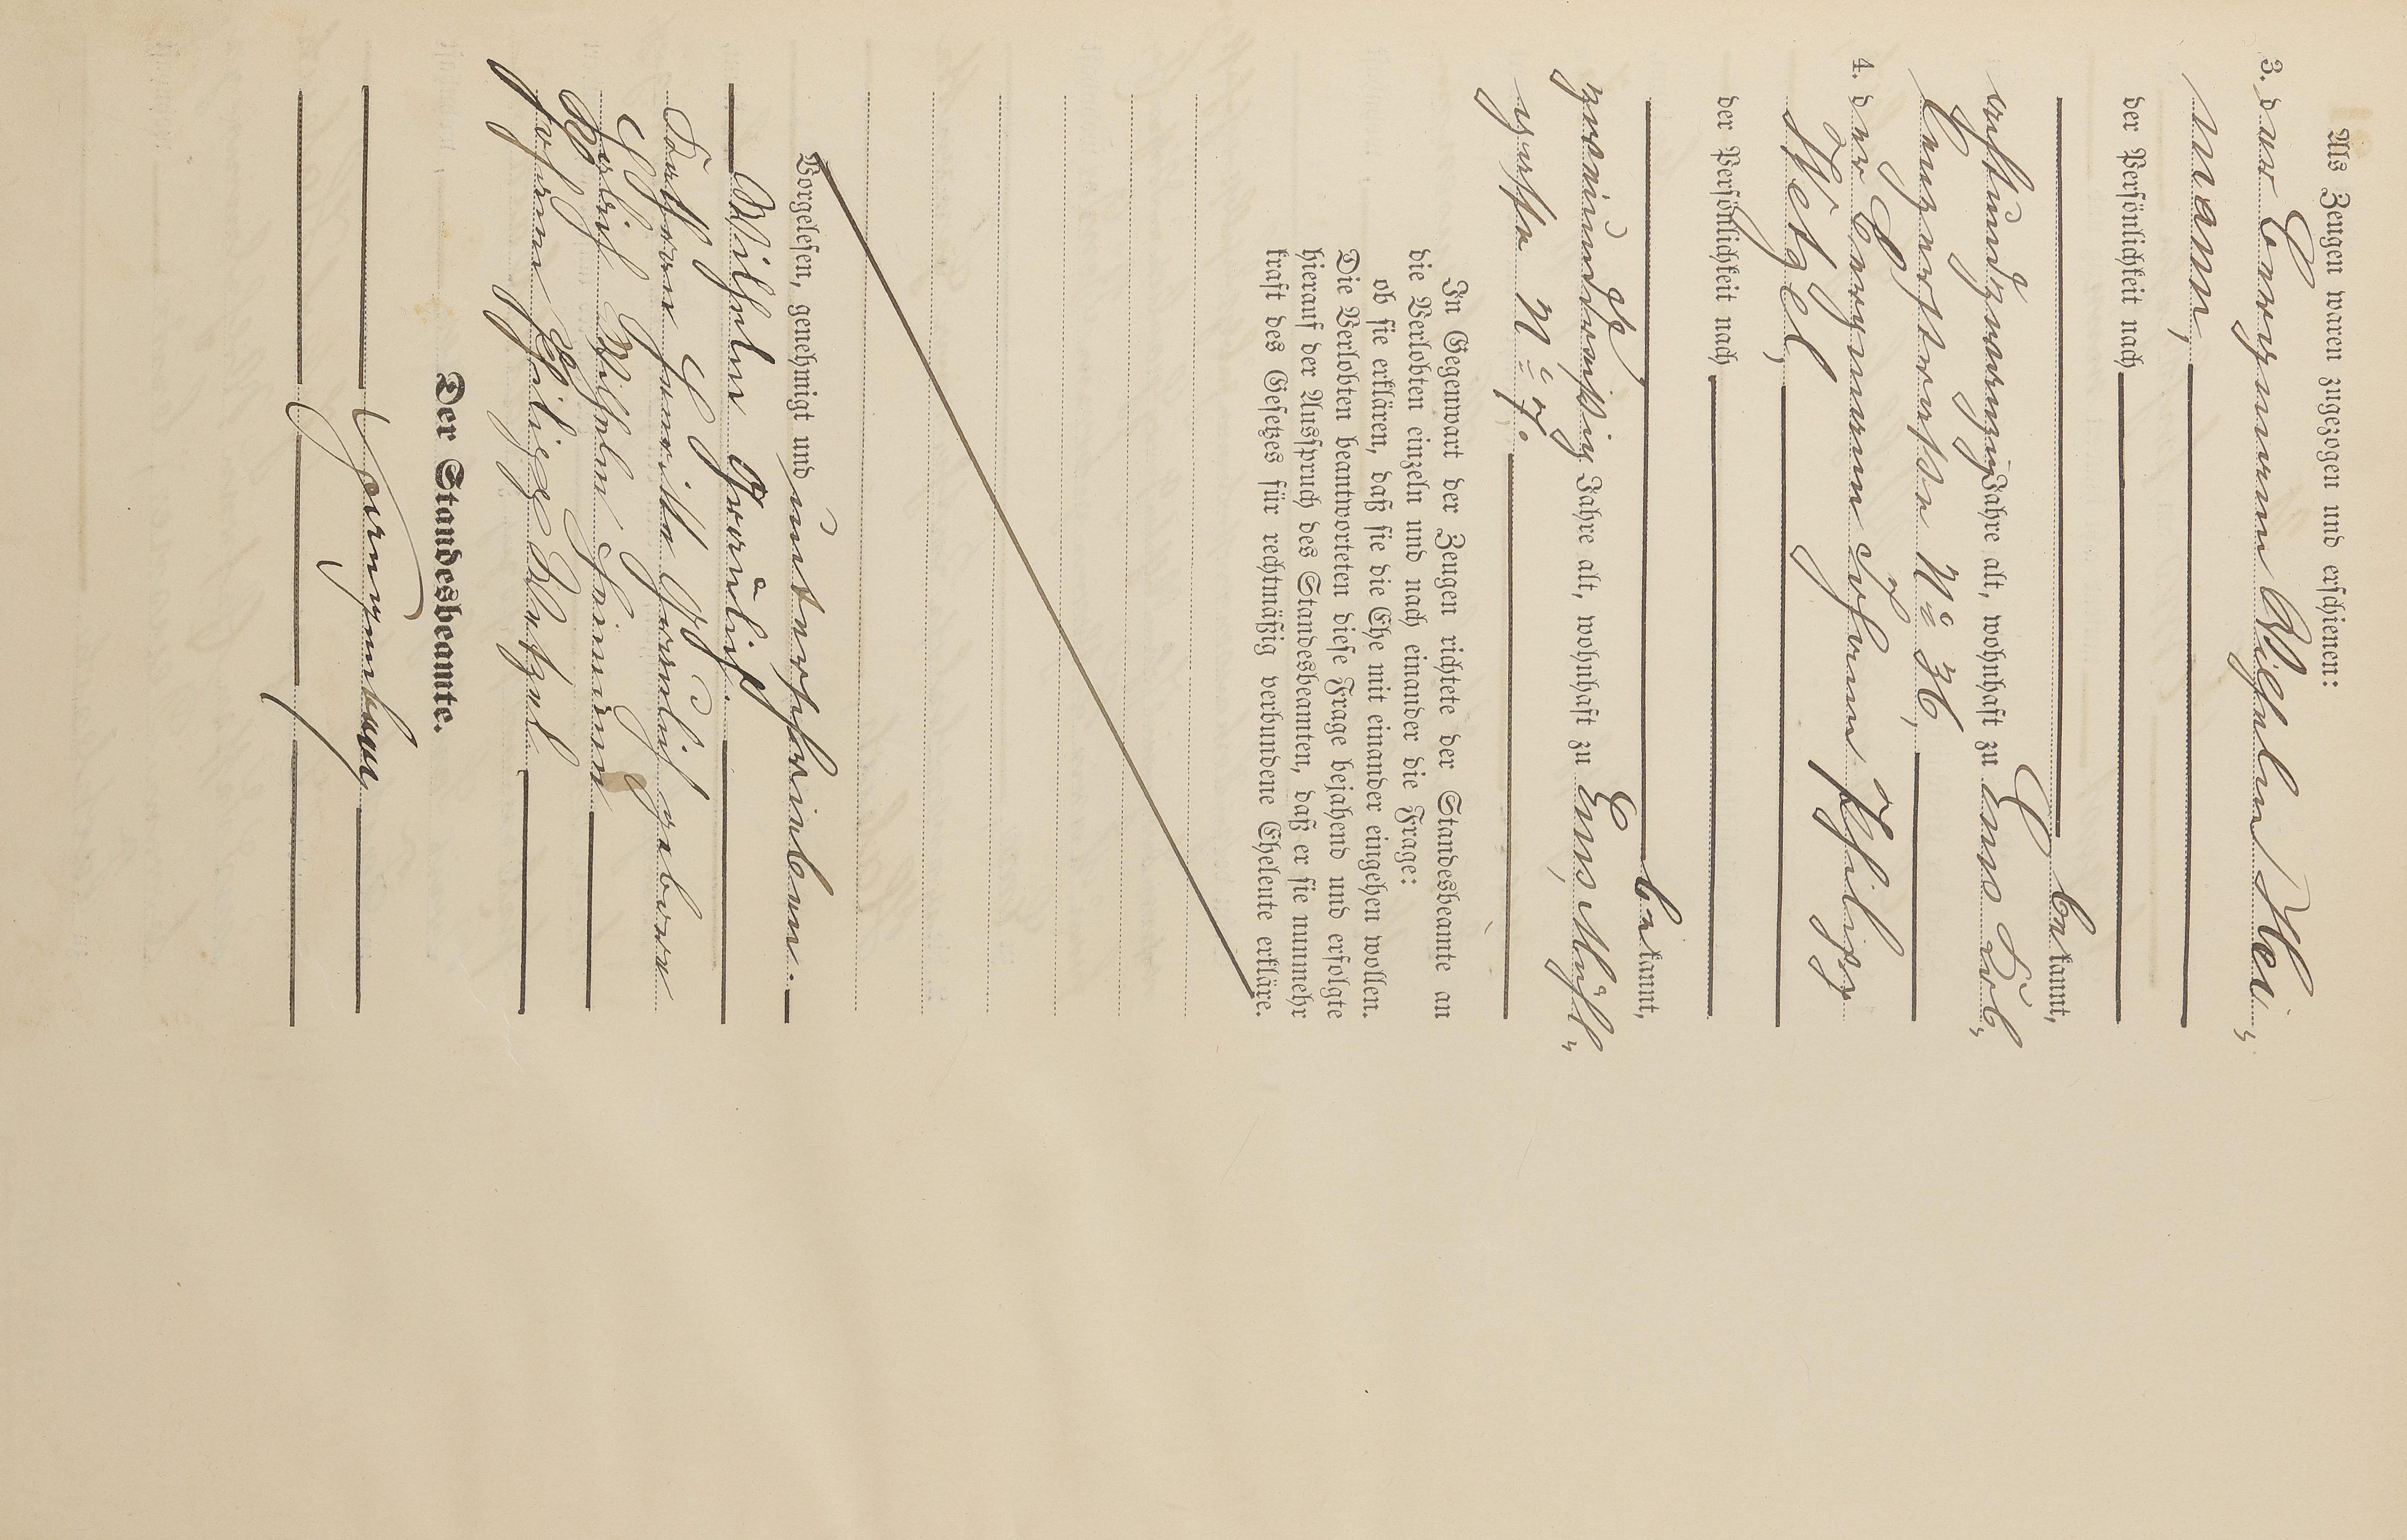 Als Zeugen waren zugezogen und erschienen:
3. der Bergmann Wilhelm Hei„
mann,
der Persönlichkeit nach
bekannt,
achtundzwanzig Jahre alt, wohnhaft zu Ems Lob„
bergerstrasse No 36,
4. der Bergmann Johann Philipp
Wetzel,
der Persönlichkeit nach
bekannt,
zweiunddreißig Jahre alt, wohnhaft zu Ems, Mühl„
gasse No 7.
In Gegenwart der Zeugen richtete der Standesbeamte an
die Verlobten einzeln und nach einander die Frage:
ob sie erklären, daß sie die Ehe mit einander eingehen wollen.
Die Verlobten beantworteten diese Frage bejahend und erfolgte
hierauf der Ausspruch des Standesbeamten, daß er sie nunmehr
kraft des Gesetzes für rechtmäßig verbundene Eheleute erkläre.
Vorgelesen, genehmigt und unterschrieben.
Wilhelm
Henriette geborene
Wilhelm Heimann
Johann Philipp Wetzel
Der Standesbeamte.